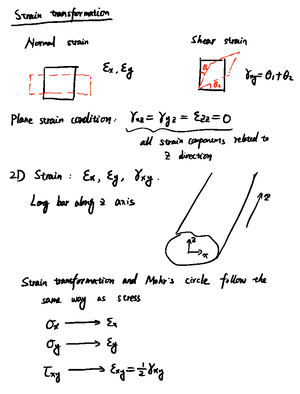 Strain transformation
Normal strain
Shear strain
εx, εy
θ1
θ2
γxy = θ1 + θ2
Plane strain condition: γxz = γyz = εzz = 0
all strain components related to
z direction
2D Strain: εx, εy, γxy.
Long bar along z axis
z
x
Strain transformation and Mohr's circle follow the
same way as stress
σx → εx
σy → εy
τxy → εxy = ½ γxy